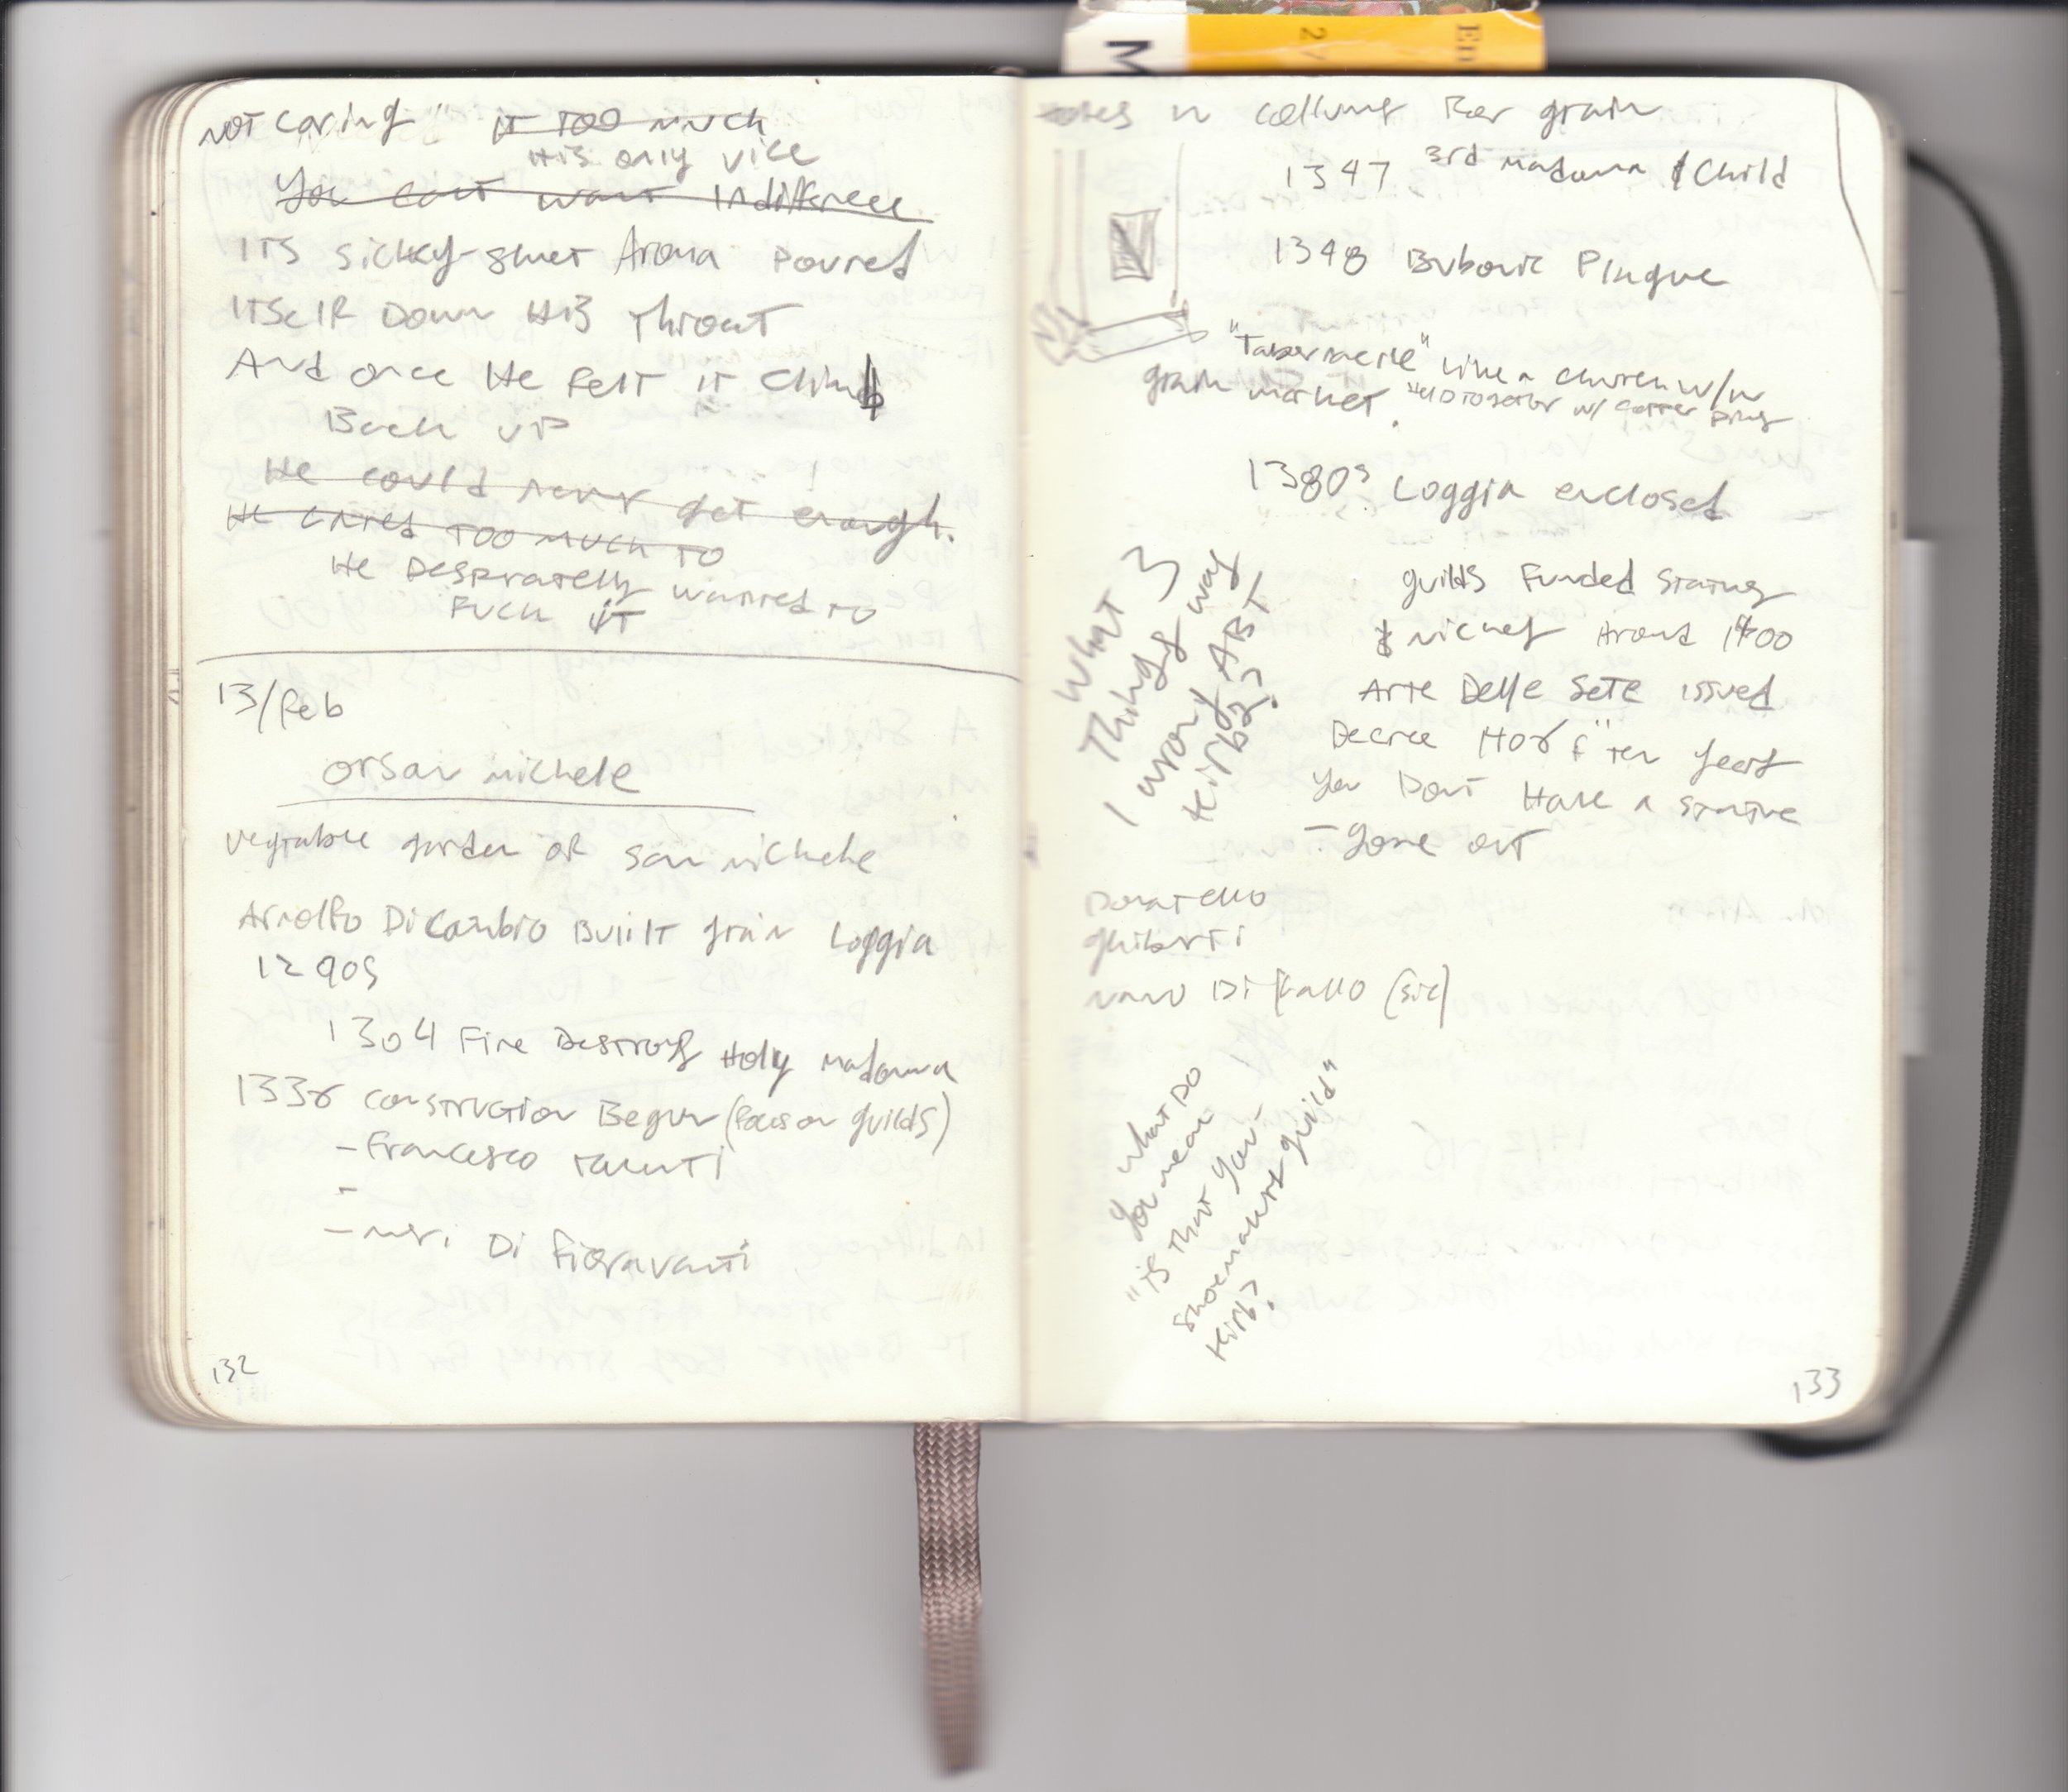 NOT caring" ~~it too much~~
His only vice
~~You cant want Indifference~~
ITS sickly-sweet Aroma Poured
ITSelf Down His Throat
And once He felt it Climb
Back up
~~He could never get enough.~~
~~He cared too much to~~
He Despratelly wanted to
Fuck it
13/feb
orsan michele
vegtable garden of san michele
Arnolfo Di Cambio Built grain Loggia
1290s
1304 Fire Destroys Holy madonna
1336 construction Begun (focus on guilds)
- Francesco talenti
-
- neri Di fioravanti
132
M
2
En
holes in collums for grain
1347 3rd madonna & Child
1348 Bubonic Plague
"Tabernacle" like a church w/in
grain market.
1380s Loggia enclosed
guilds Funded statues
& niches Around 1400
Arte Delle Sete issued
Decree 1406 "ten years
you Dont Have a statue
- your out
What 3
Things
I wrong way
Kirby?
Donatello
Ghiberti
nano Di (sic)
What Do
you mean
"is that your
shoemakers guild"
Kirby?
133